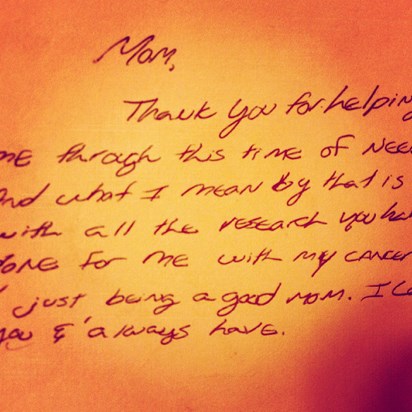 Mom,
Thank you for helping
me through this time of need
And what I mean by that is
with all the research you hav
done for me with my cancer
& just being a good mom. I lo
you & always have.